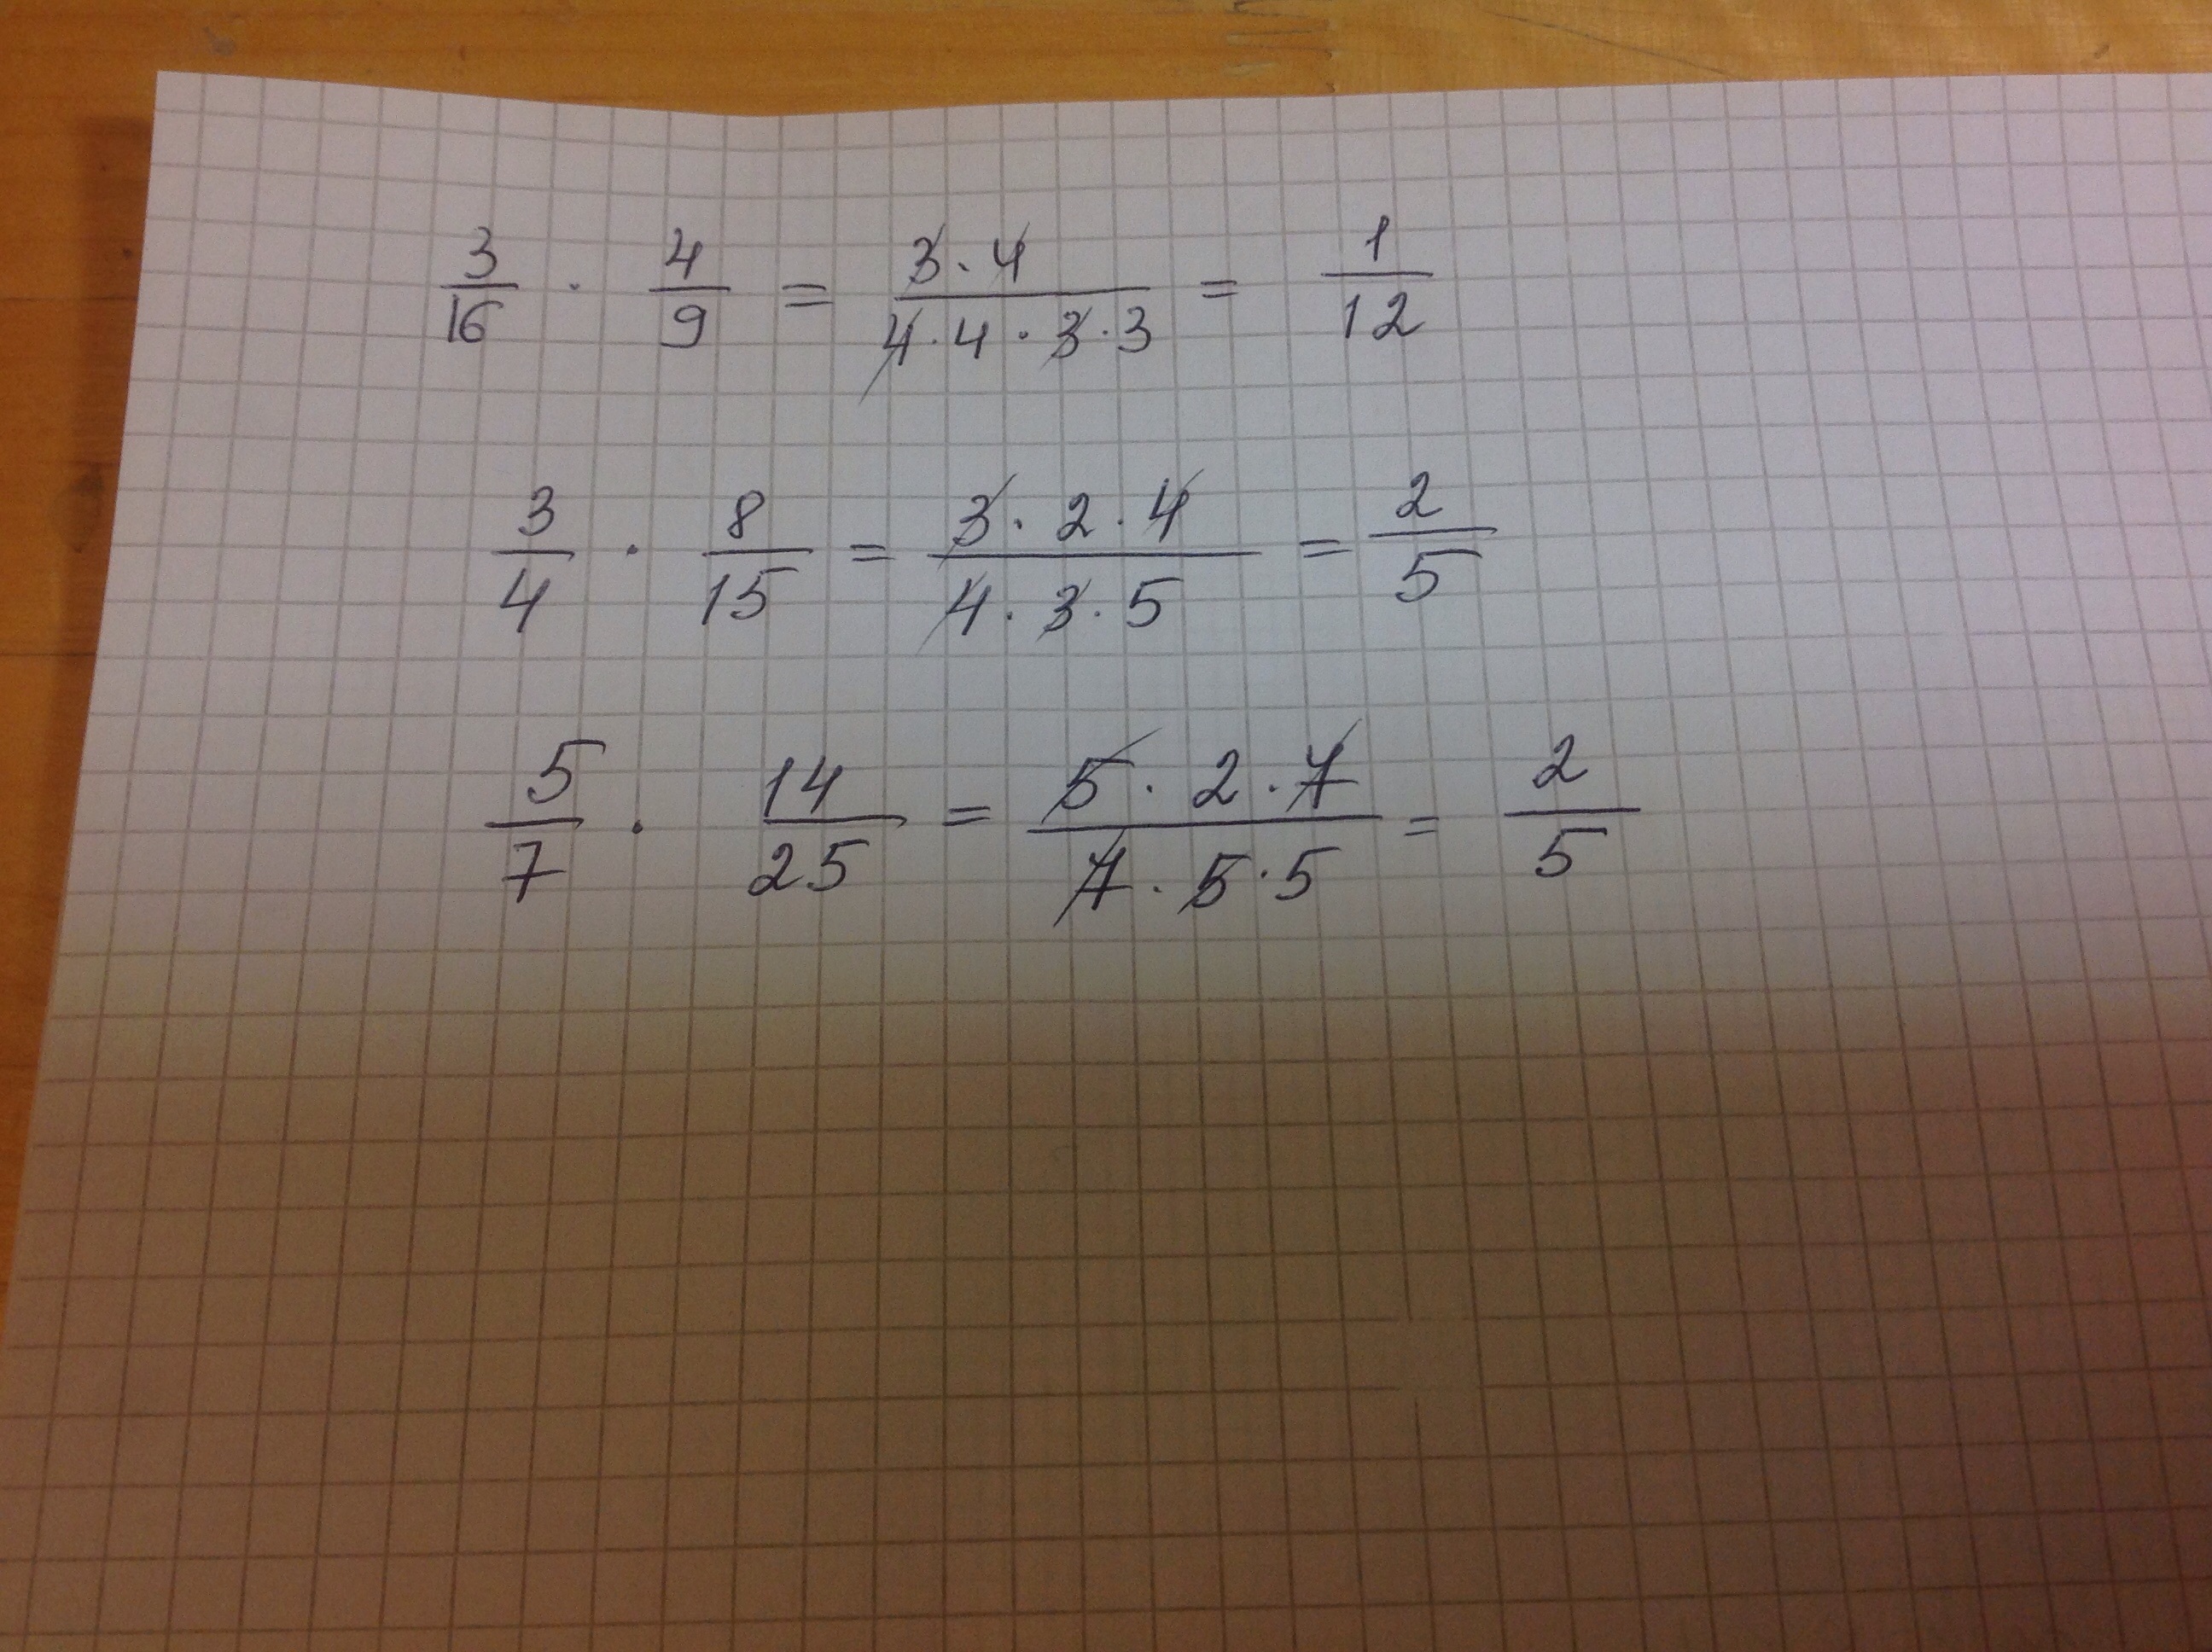 3/16 · 4/9 = 3·4/4·4·3·3 = 1/12
3/4 · 8/15 = 3·2·4/4·3·5 = 2/5
5/7 · 14/25 = 5·2·7/7·5·5 = 2/5